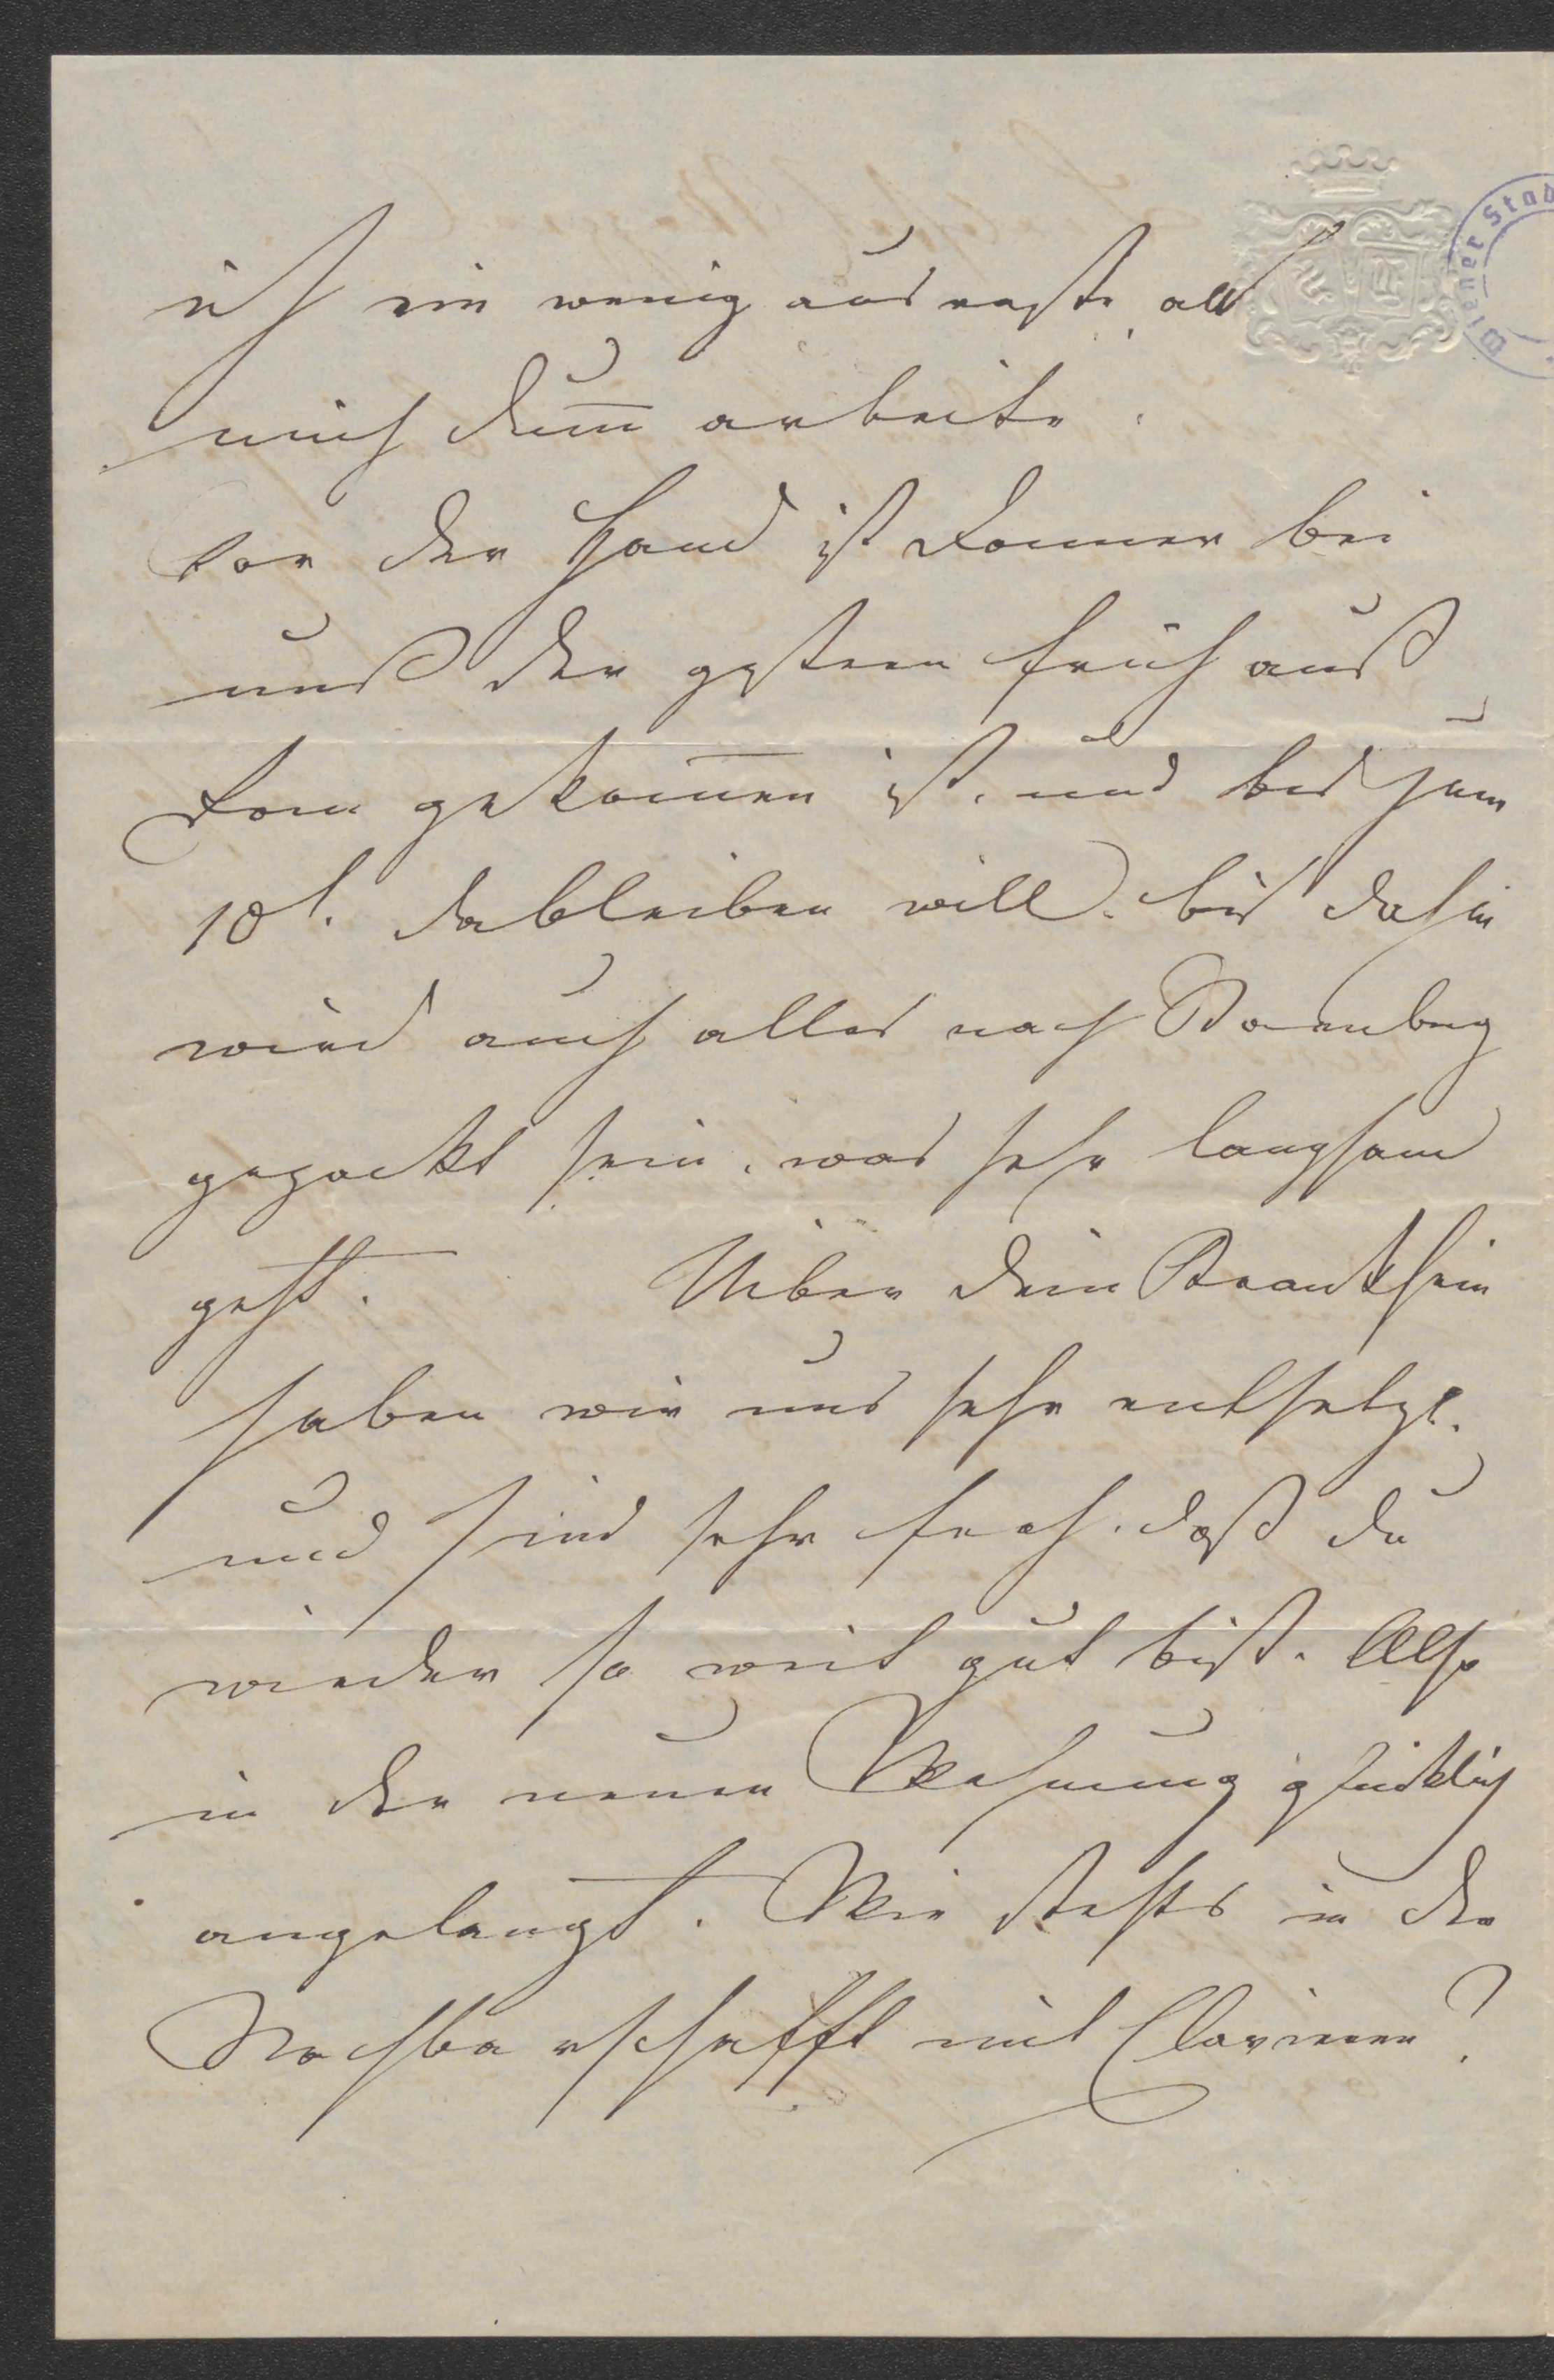 ich ein wenig ausraste, als
mich dum̅ arbeite.
vor der Hand ist Donner bei
unß der gestern früh auß
Rom gekom̅en ist, und bis zum
10t. dableiben will. bis dahin
wird auch alles nach
gepackt sein, was sehr langsam
geht. Über dein Kranksein
haben wir uns sehr entsetzt.
und sind sehr froh. daß du
wieder so weit gut bist. Also
in der neuen Wohnung glücklich
angelangt. Wie stehts in der
Nachbarschafft mit Clavieren?
Wiener Stad